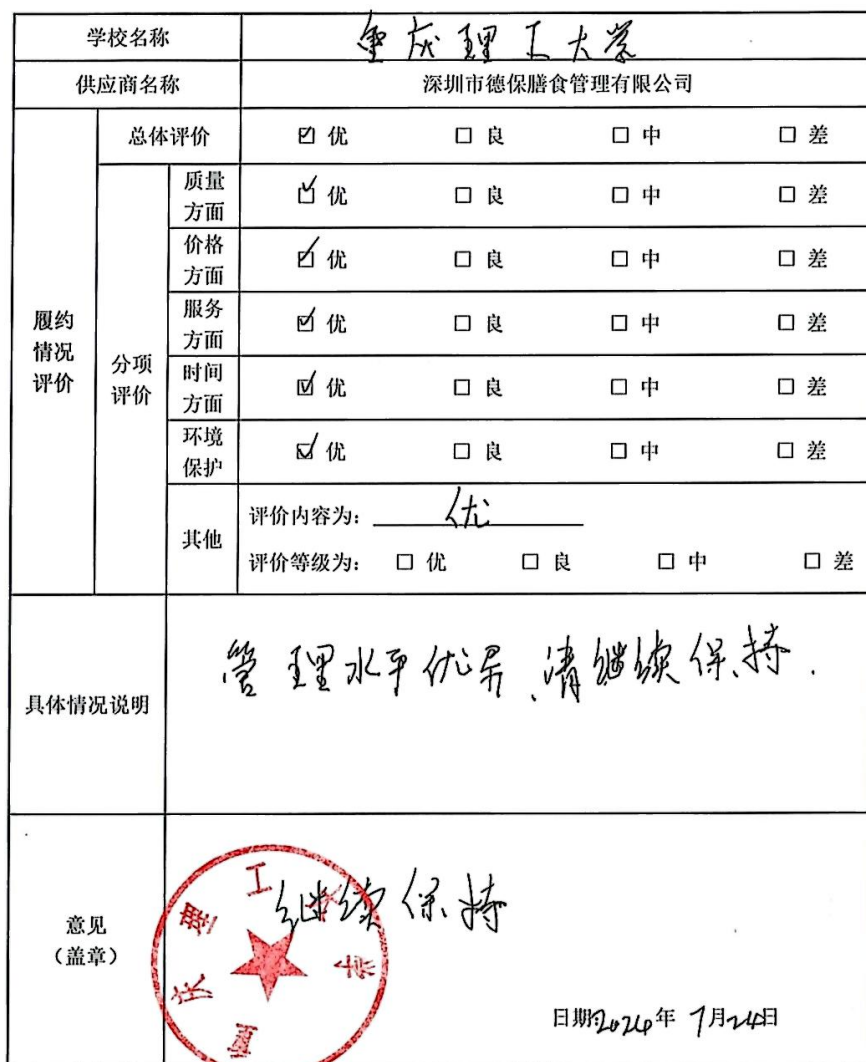 学校名称 重庆理工大学
供应商名称 深圳市德保膳食管理有限公司
履约情况评价
总体评价 ☑ 优 □ 良 □ 中 □ 差
分项评价
质量方面 ☑ 优 □ 良 □ 中 □ 差
价格方面 ☑ 优 □ 良 □ 中 □ 差
服务方面 ☑ 优 □ 良 □ 中 □ 差
时间方面 ☑ 优 □ 良 □ 中 □ 差
环境保护 ☑ 优 □ 良 □ 中 □ 差
其他 评价内容为：优
评价等级为： □ 优 □ 良 □ 中 □ 差
具体情况说明 管理水平优异、请继续保持.
意见
（盖章）
继续保持
重庆理工大学
日期2024年 7月24日